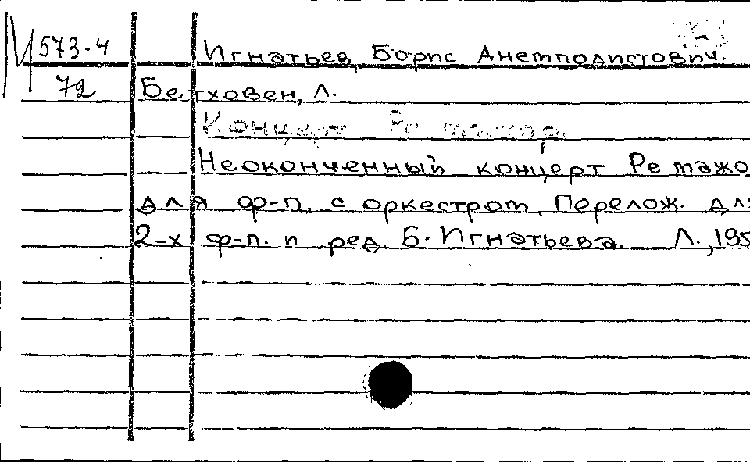 М 573-4
72
Игнатьев, Борис Анемподистович.
Бетховен, Л.
Концерт Ре мажор.
Неоконченный концерт Ре мажо
для ф-п. с оркестром. Перелож. дл
2-х ф-п. и ред. Б. Игнатьева. Л., 195